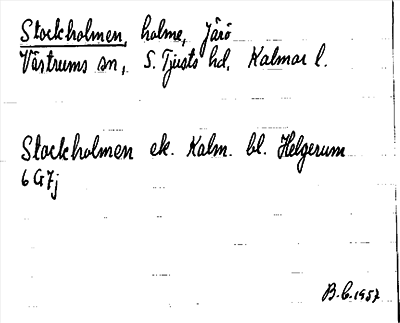 Stockholmen, holme, Järö
Västrums sn, S. Tjusts hd, Kalmar l.
Stockholmen ek. Kalm. bl. Helgerum
6G7j
B.C. 1957